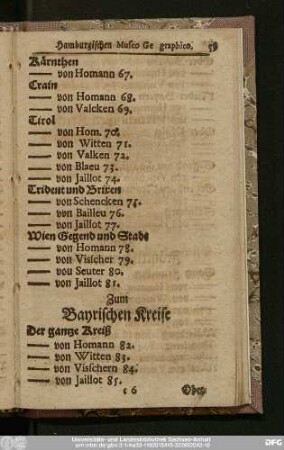 Hamburgischen Museo Ge graphico, 59
Kärnthen
—— von Homann 67.
Crain
—— von Homann 68.
—— von Valcken 69.
Tirol
—— von Hom. 70.
—— von Witten 71.
—— von Valken 72.
—— von Blaeu 73.
—— von Jaillot 74.
Trident und Brixen
—— von Schencken 75.
—— von Bailleu 76.
—— von Jaillot 77.
Wien Gegend und Stadt
—— von Homann 78.
—— von Visscher 79.
—— von Seuter 80.
—— von Jaillot 81.
Zum
Bayrischen Kreise
Der gantze Kreiß
—— von Homann 82.
—— von Witten 83.
—— von Visschern 84.
—— von Jaillot 85.
c 6 Ober
Universitäts- und Landesbibliothek Sachsen-Anhalt
DFG